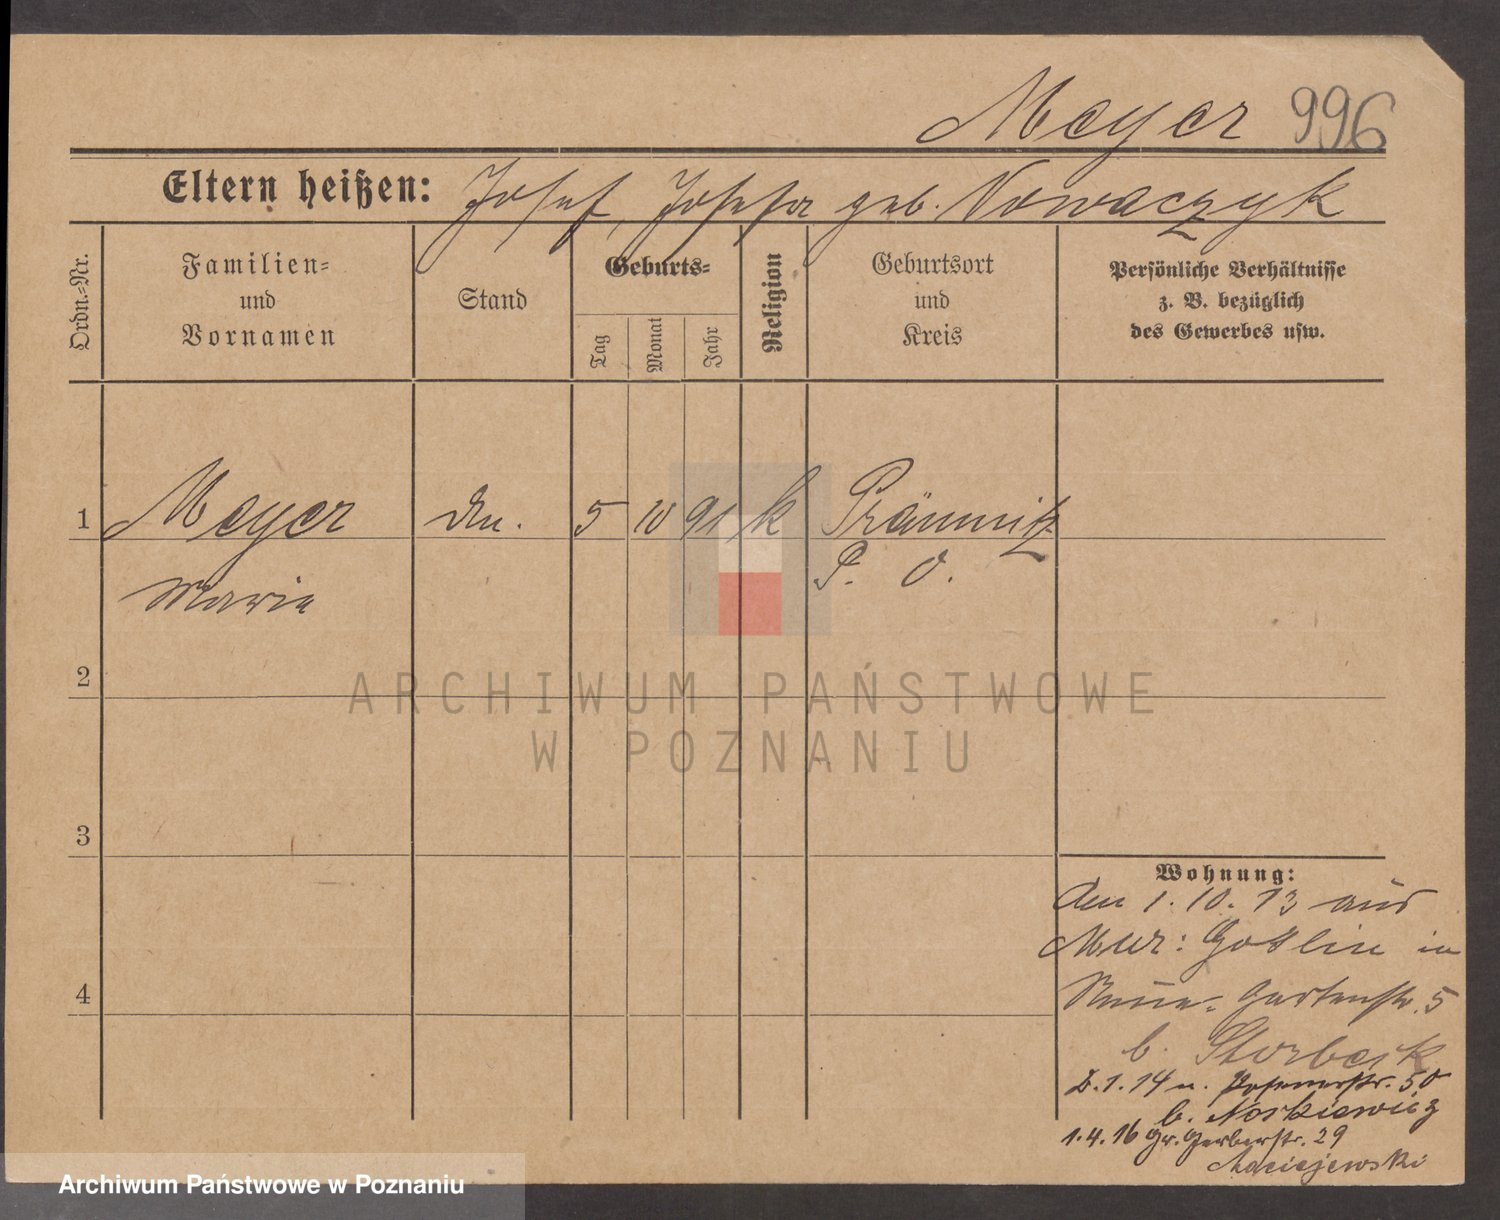 Meyer 996
Eltern heißen: Josef, Josefa geb. Nowaczyk
Ordn.-Nr.
Familien-
und
Vornamen
Stand
Geburts-
Tag
Monat
Jahr
Religion
Geburtsort
und
Kreis
Persönliche Verhältnisse
z. B. bezüglich
des Gewerbes usw.
1 Meyer 5 10 91 k Prämnitz
Marie P. O.
2
ARCHIWUM PAŃSTWOWE
W POZNANIU
3
Wohnung:
den 1.10.13 aus
Mur: Goslin in
Neue-Gartenstr. 5
4
b.
2.1.14 n. Posenerstr. 50
b. Noskiewicz
1.4.16 Gr. Gerberstr. 29
Maciejewski
Archiwum Państwowe w Poznaniu